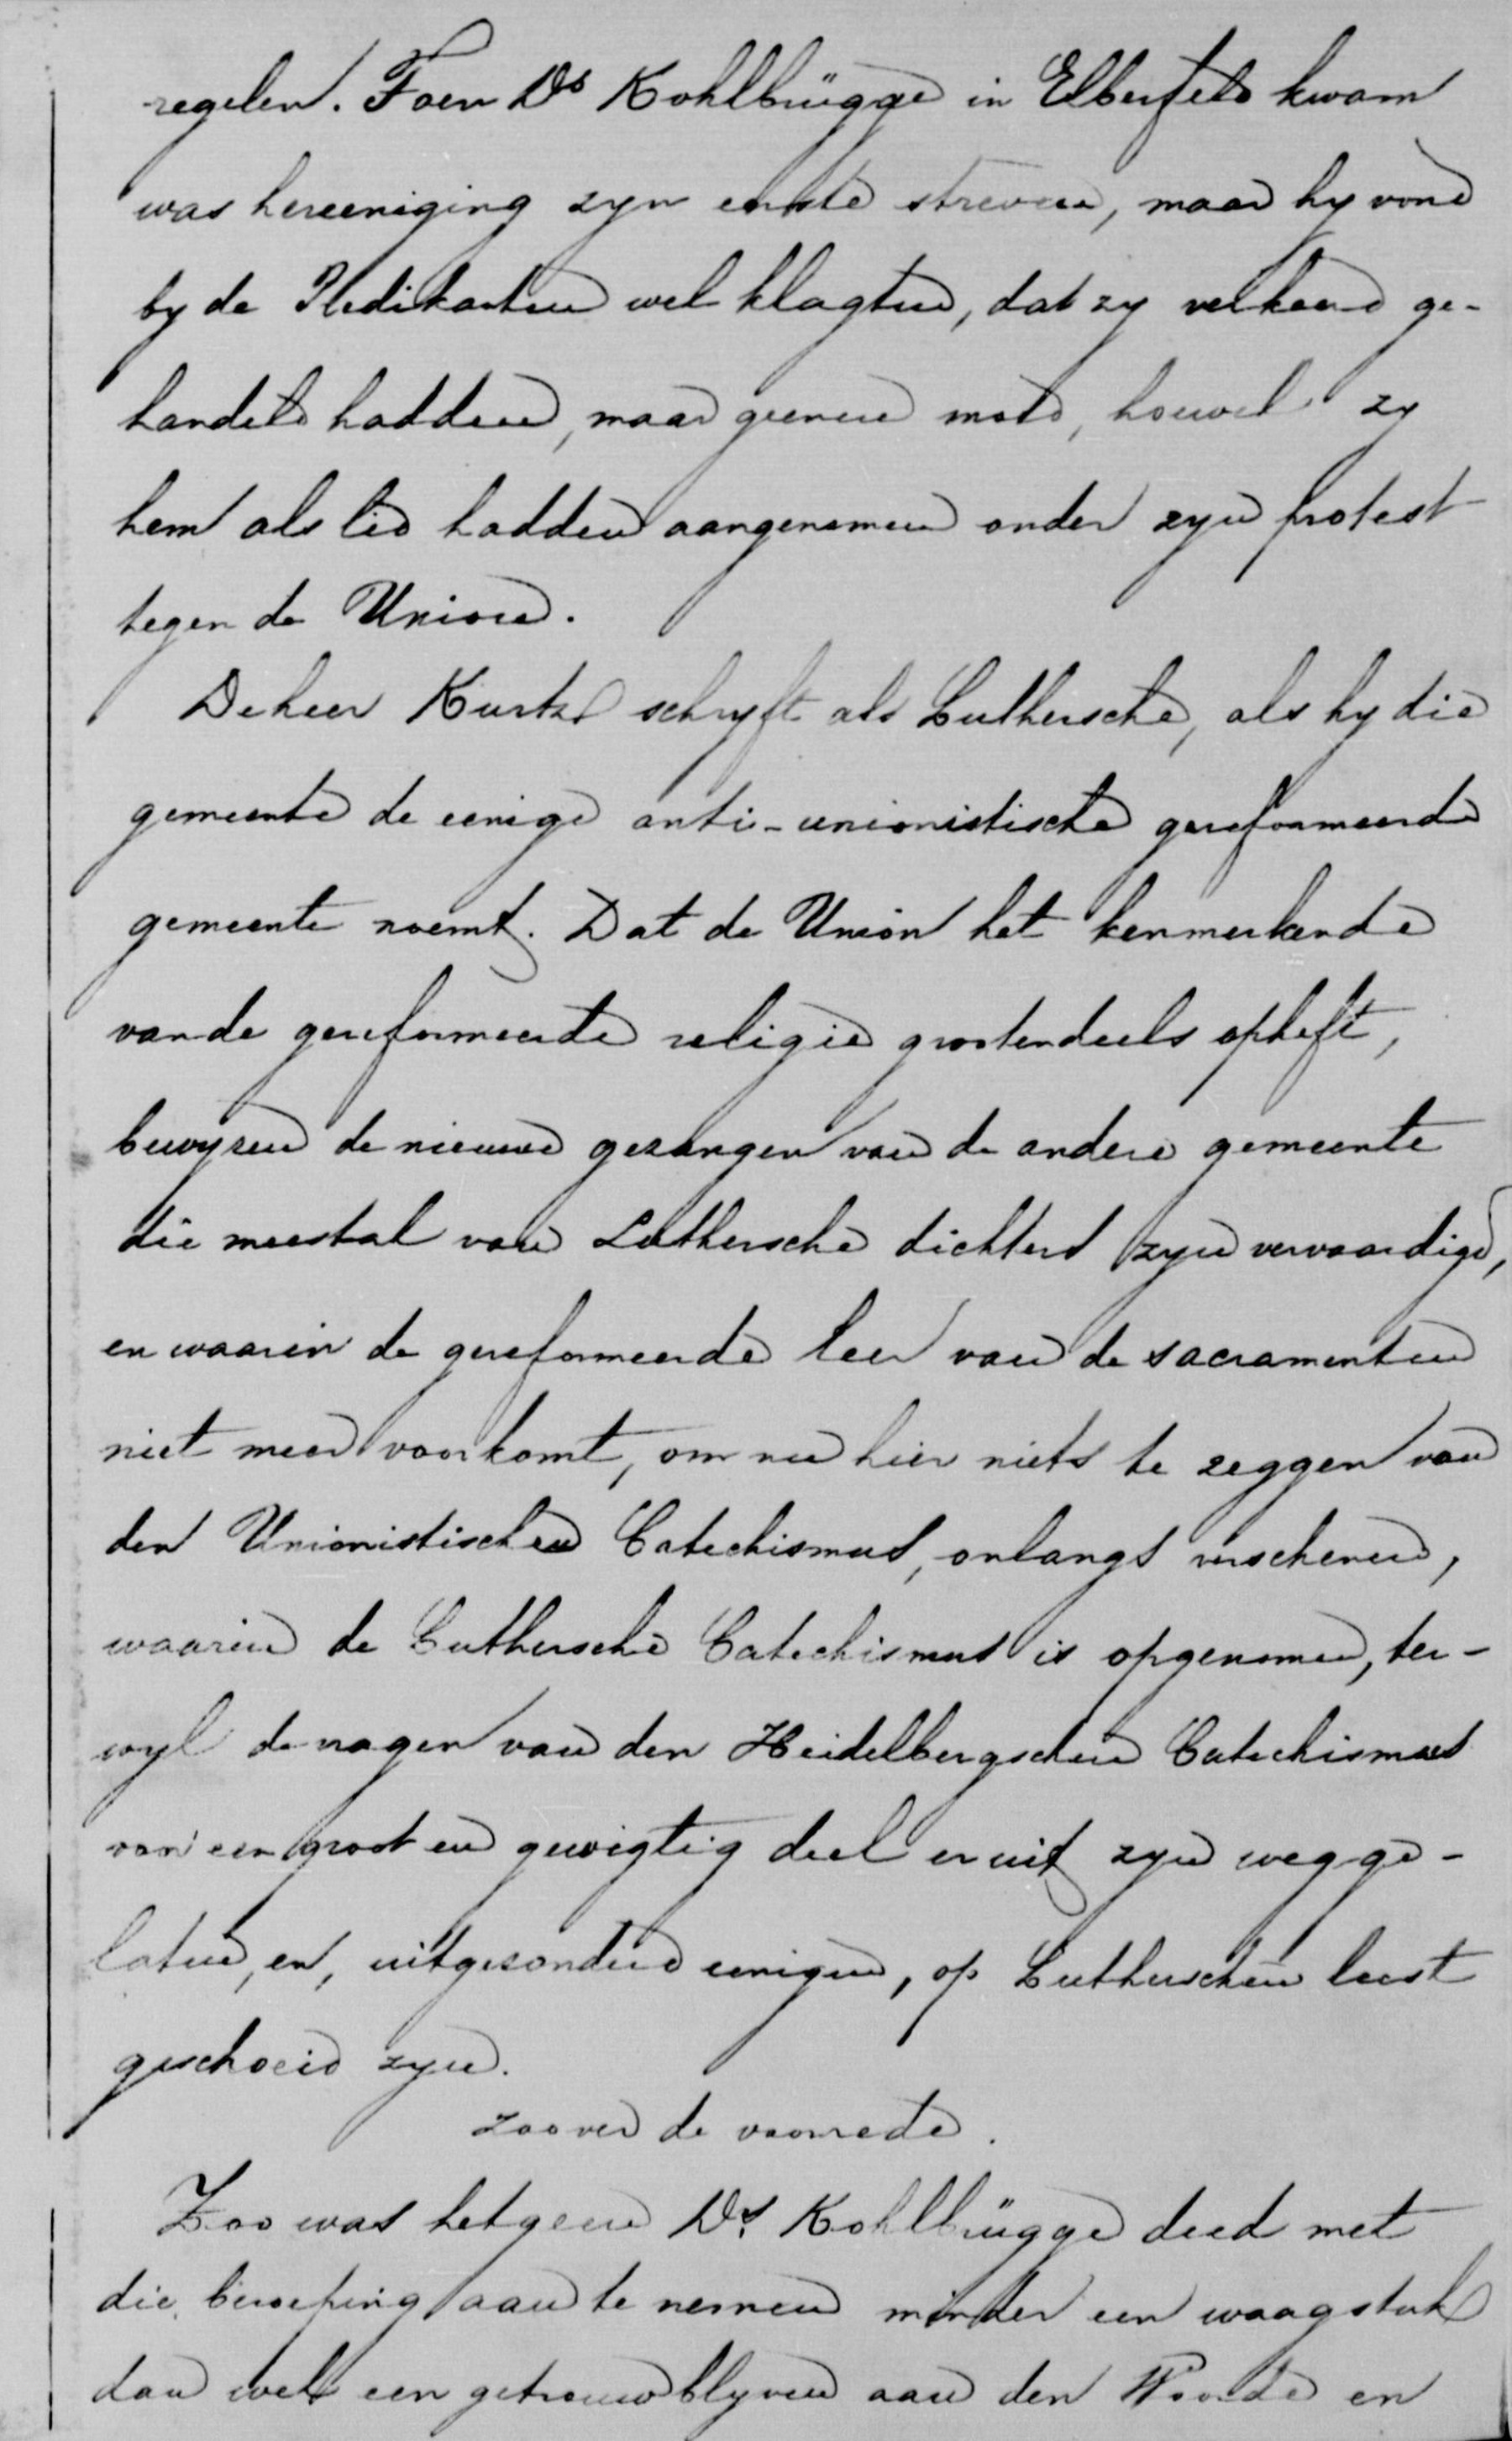 regelen. Toen Ds Kohlbrügge in Elberfeld kwam
was hereeniging zyn eerste streven, maar hy vond
by de Predikanten wel klagten, dat zy verkeerd ge-
handeld hadden, maar geenen moed, hoewel zy
hem als lid hadden aangenomen onder zyn protest
tegen de Union.
De heer Kurtz schryft als Luthersche, als hy die
gemeente de eenige anti-unionistische gereformeerde
gemeente noemt. Dat de Union het kenmerkende
van de gereformeerde religie grootendeels opheft,
bewyzen de nieuwe gezangen van de andere gemeente
die meestal van Luthersche dichters zyn vervaardigd,
en waarin de gereformeerde leer van de sacramenten
niet meer voorkomt, om nu hier niets te zeggen van
den Unionistischen Catechismus, onlangs verschenen,
waarin de Luthersche Catechismus is opgenomen, ter-
wyl de vragen van den Heidelbergschen Catechismus
voor een groot en gewigtig deel er uit zyn wegge-
laten, en, uitgezonderd eenigen, op Lutherschen leest
geschoeid zyn.
Zoo ver de voorrede.
Zoo was hetgeen Ds. Kohlbrügge deed met
die beroeping aan te nemen minder een waagstuk
dan wel een getrouw blyven aan den Woorde en